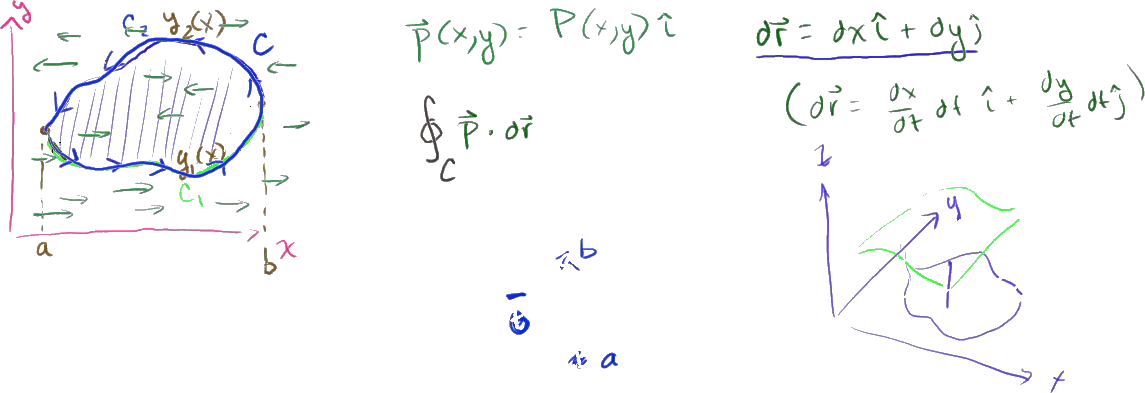 y
C₂ y₂(x)
C
y₁(x)
C₁
a
b
x
P⃗(x,y) = P(x,y) î
∮_C P⃗ · dr⃗
b
a
dr⃗ = dx î + dy ĵ
(dr⃗ = dx/dt dt î + dy/dt dt ĵ)
z
y
x